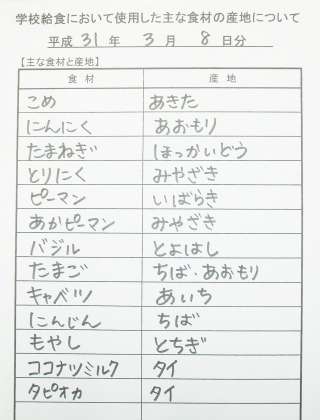 学校給食において使用した主な食材の産地について
平成 31 年 3 月 8 日分
【主な食材と産地】
食材 産地
こめ あきた
にんにく あおもり
たまねぎ ほっかいどう
とりにく みやざき
ピーマン いばらき
あかピーマン みやざき
バジル とよはし
たまご ちば・あおもり
キャベツ あいち
にんじん ちば
もやし とちぎ
ココナツミルク タイ
タピオカ タイ